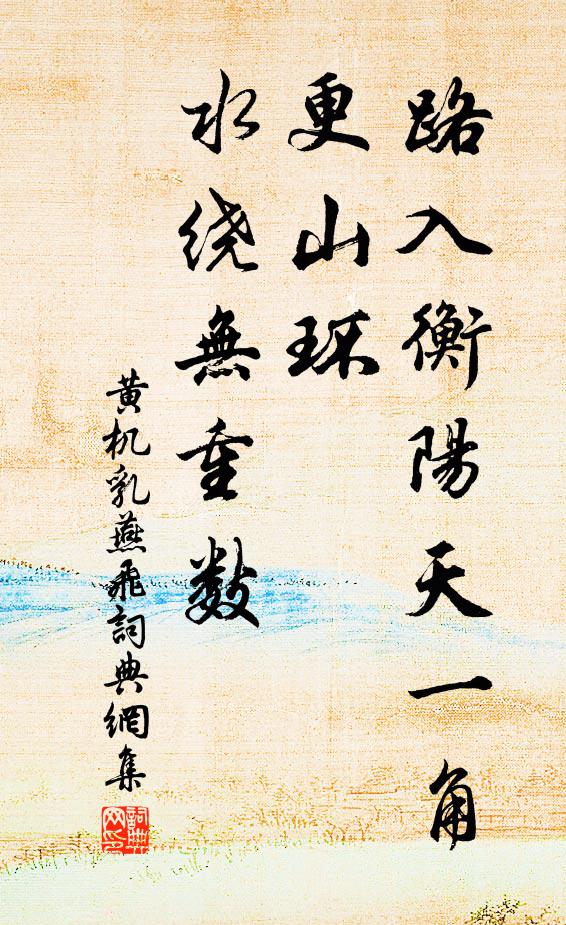 路入衡陽天一角
更山环
水绕無重数
黄机乳燕飛詞典網集
詞典网印